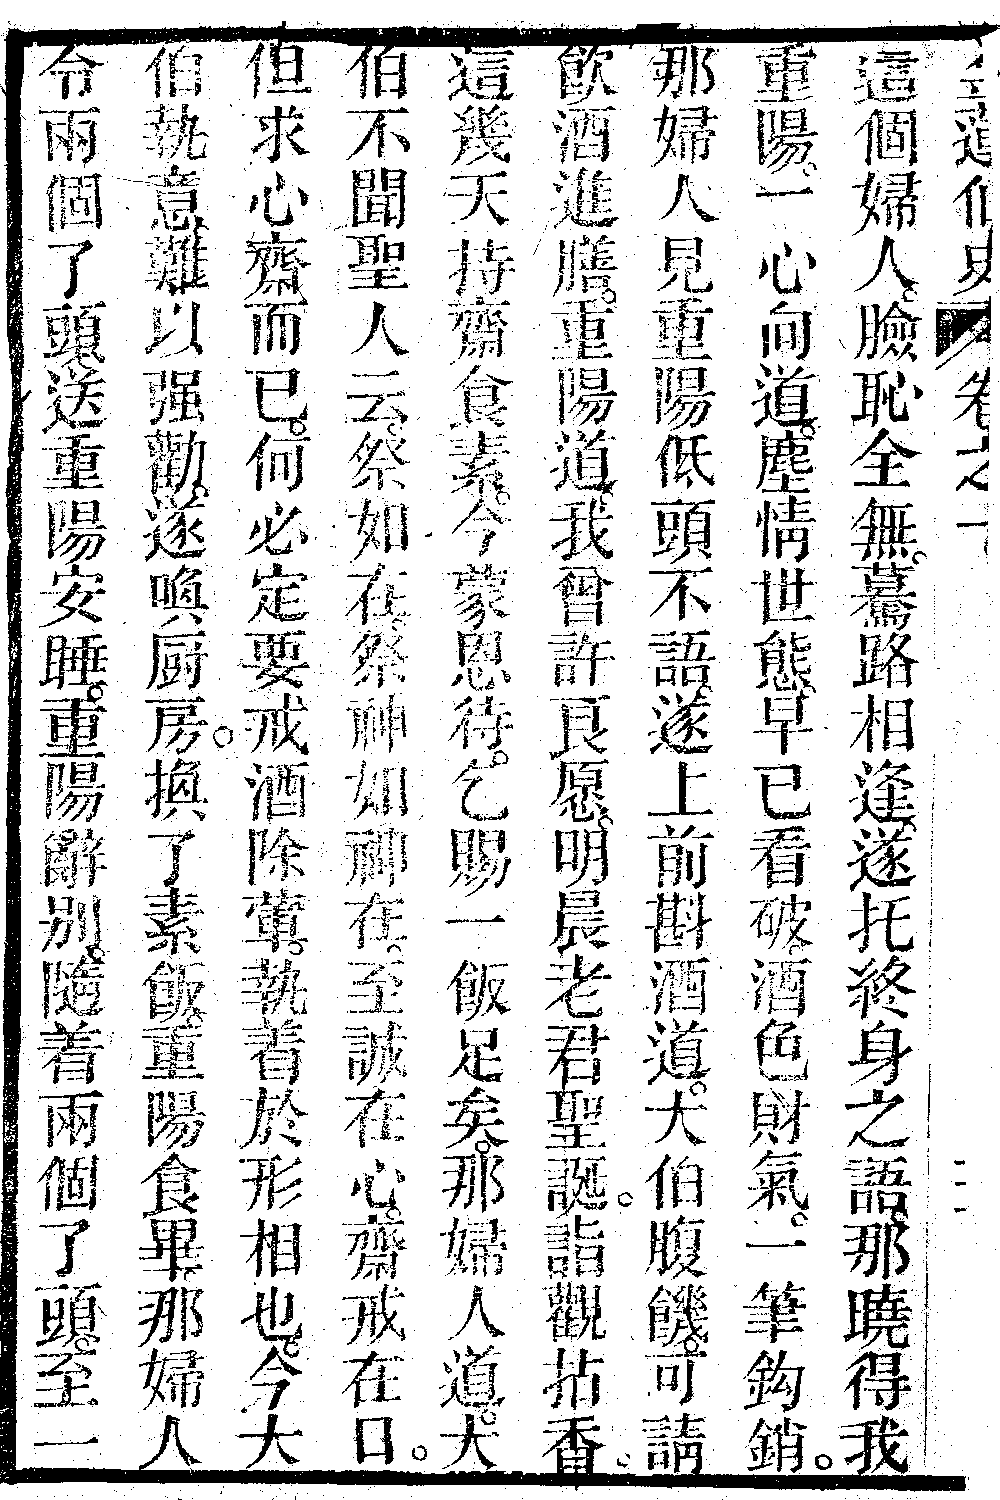 仙史 卷之一
這個婦人。臉恥全無。驀路相逢。遂托終身之語。那曉得我
重陽。一心向道。塵情世態。早已看破。酒色財氣。一筆鈎銷。
那婦人見重陽低頭不語。遂上前斟酒道。大伯腹饑。可請
飲酒進膳。重陽道。我曾許良愿。明晨老君聖誕。詣觀拈香。
這幾天持齋食素。今蒙恩待。乞賜一飯足矣。那婦人道。大
伯不聞聖人云。祭如在。祭神如神在。至誠在心。齋戒在口。
但求心齋而已。何必定要戒酒除葷。執着於形相也。今大
伯執意難以强勸。遂喚厨房。換了素飯。重陽食畢。那婦人
令兩個了頭送重陽安睡。重陽辭別。隨着兩個了頭。至一